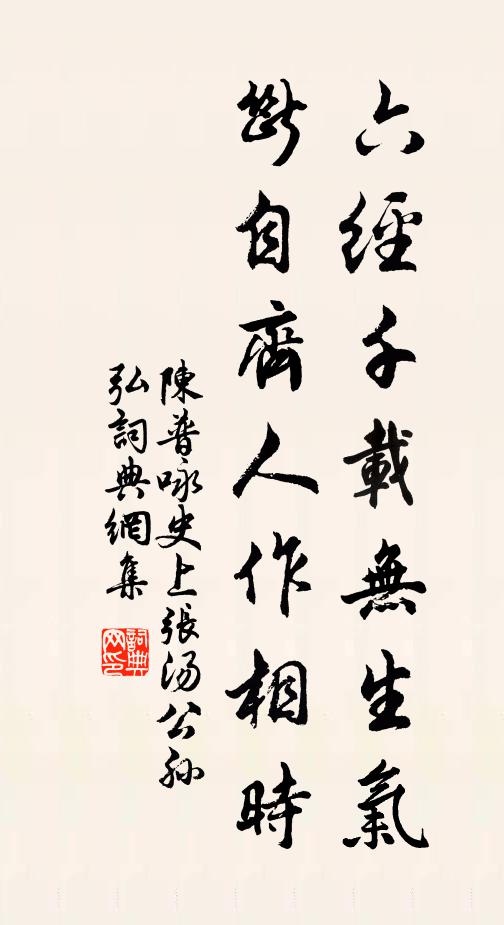 六經千載無生氣
斷自齊人作相時
陳普咏史上張湯公孫
弘詞典網集
詞典
网印